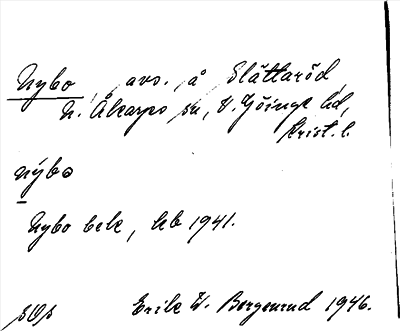 Nybo, avs. å Slättaröd
N. Åkarps sn, V. Göinge hd,
Krist. l.
nýbo
Nybo bek, hb 1941.
sOs Erik W. Bergenrud 1946.